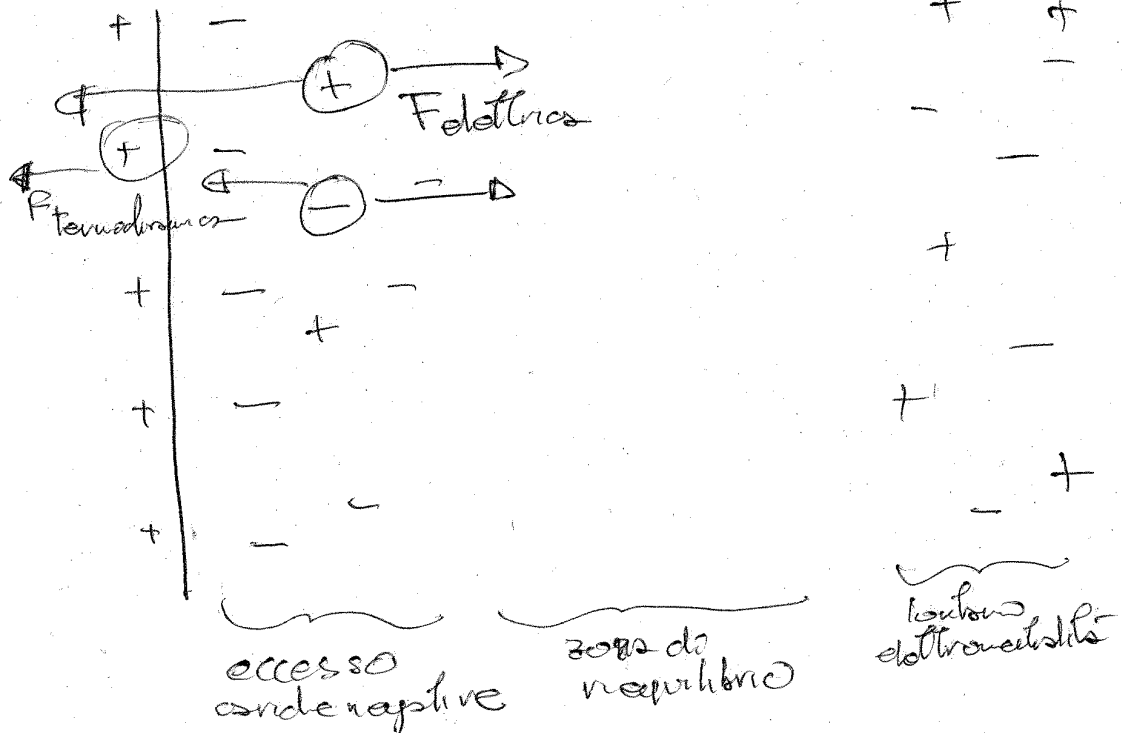 + - + +
+ -
F elettrica -
+ - -
- -
F termodinamica
+
+ - -
+
-
+ - +
+
-
+ - -
eccesso
cariche negative
zona di
riequilibrio
lontano
elettroneutralità